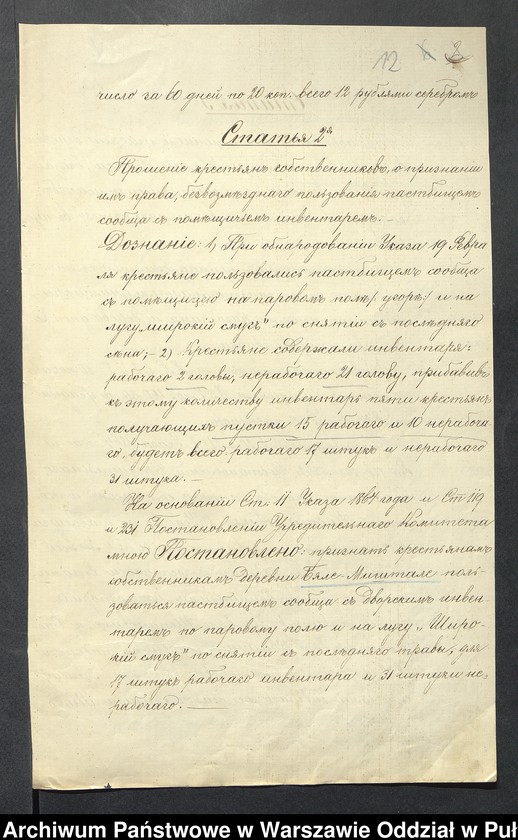 12
число за 60 дней по 20 коп. всего 12 рублями серебромъ
Статья 2я
Прошеніе крестьянъ собственниковъ, о признаніи
имъ права, безвозмезднаго пользованія пастбищемъ
сообща съ помѣщичьемъ инвентаремъ. —
Дознаніе: 1) При обнародованіи Указа 19 Февра
ля крестьяне пользовались пастбищемъ сообща
съ помѣщицею на паровомъ полѣ /: угорѣ :/ и на
лугу „широкій смугъ" по снятіи съ послѣдняго
сѣна; — 2) Крестьяне содержали инвентаря:
рабочаго 2 головы, нерабочаго 21 голову, прибавивъ
къ этому количеству инвентарь пяти крестьянъ
получающихъ пустки 15 рабочаго и 10 нерабоча-
го будетъ всего рабочаго 17 штукъ и нерабочаго
31 штука. —
На основаніи Ст. 11 Указа 1864 года и Ст 119
и 231 Постановленій Учредительнаго Комитета
мною Постановлено: признать крестьянамъ
собственникамъ деревни Бяле-Мишталь поль-
зоваться пастбищемъ сообща съ дворскимъ инвен-
таремъ по паровому полю и на лугу „Широ-
кій смугъ" по снятіи съ послѣдняго травы, для
17 штукъ рабочаго инвентаря и 31 штуки не-
рабочаго. —
Archiwum Państwowe w Warszawie Oddział w Puł